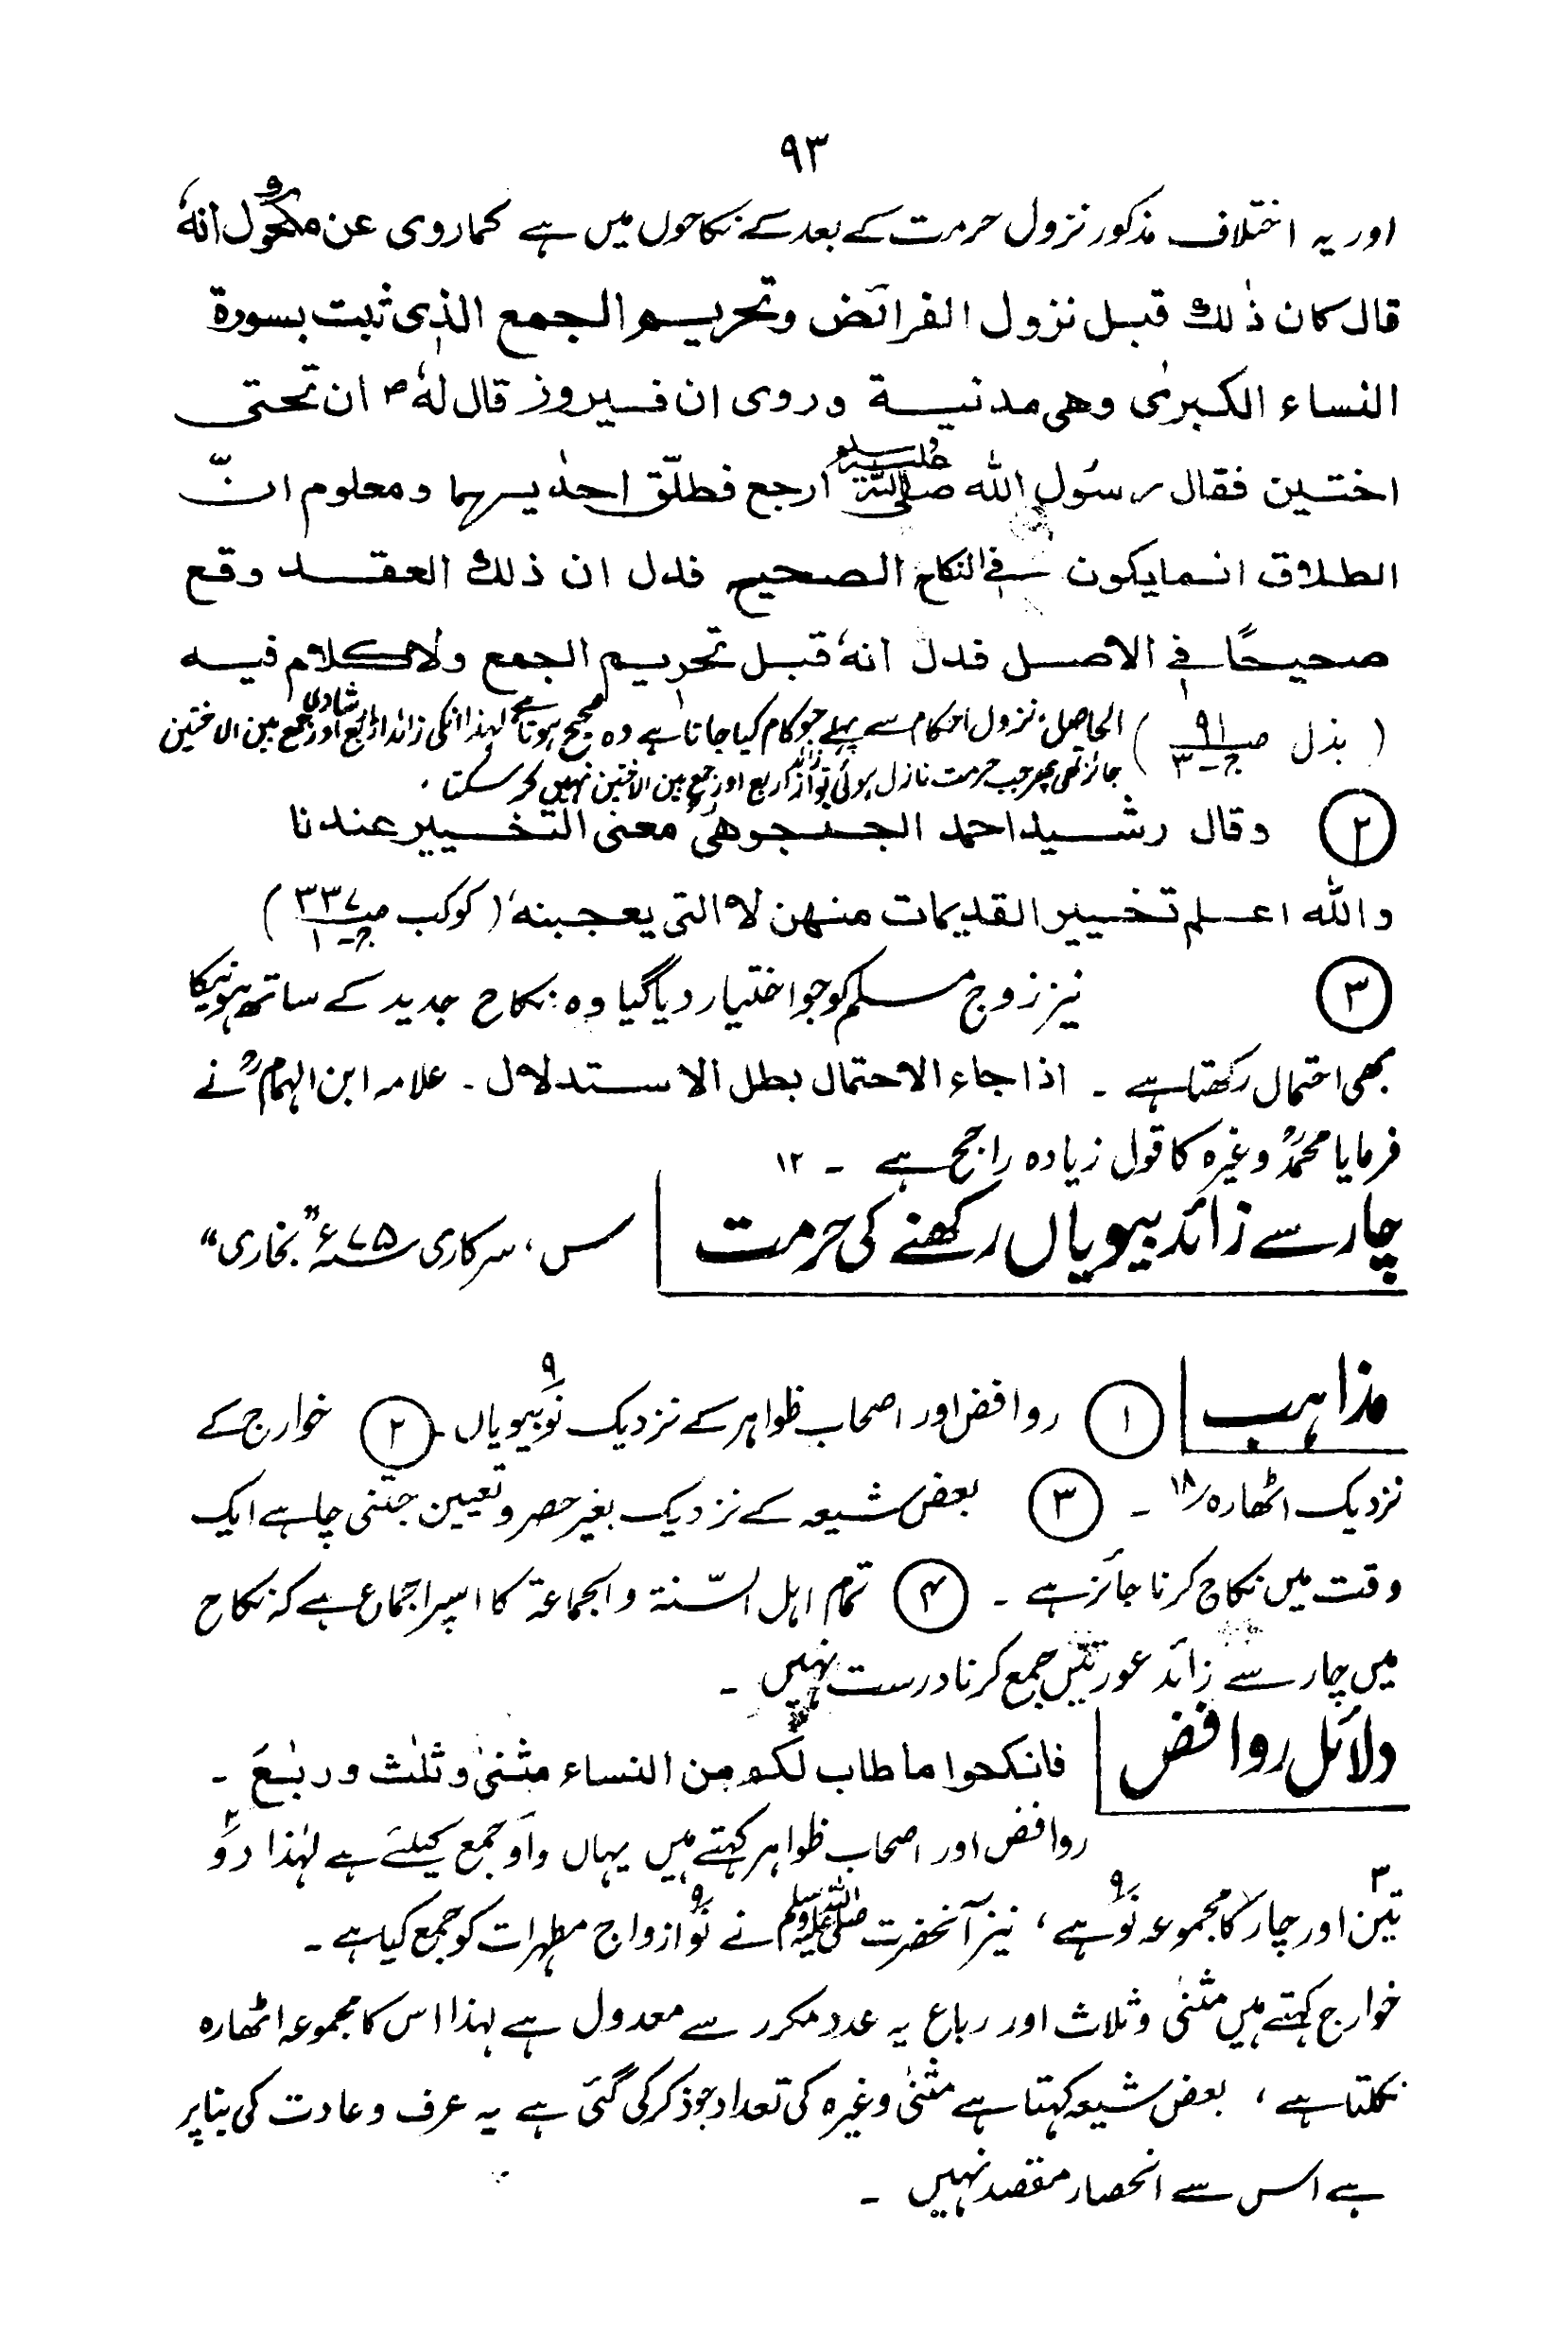 ۹۳
اور یہ اختلاف مذکور نزول حرمت کے بعد کے نکاحوں میں ہے کماروی عن مکحولؒ انہٗ
قال کان ذٰلک قبل نزول الفرائض وتحریم الجمع الذی ثبت بسورۃ
النساء الکبریٰ وھی مدنیۃ وروی ان فیروز قال لہٗ ان تحتی
اختین فقال رسُول اللہ صلی اللہ علیہ وسلم ارجع فطلّق احدٰیہما ومعلوم انّ
الطلاق انما یکون فی النکاح الصحیح فدل ان ذلک العقد وقع
صحیحًا فی الاصل فدل انہٗ قبل تحریم الجمع ولا کلام فیہ
(بذل صـ۹۱ جـ۳) الحاصل: نزول احکام سے پہلے جو کام کیا جاتا ہے وہ صحیح ہوتا ہے لہذا انکی زائد از اربع شادی اور جمع بین الاختین
جائز تھی پھر جب حرمت نازل ہوئی تو زائد از اربع اور جمع بین الاختین نہیں کر سکتا ۔
② وقال رشید احمد الجنجوھیؒ معنی التخییر عندنا
واللہ اعلم تخییر القدیمات منہن لا التی یعجبنہ، (کوکب صـ۳۳۷ جـ۱)
③ نیز زوج مسلم کو جو اختیار دیا گیا وہ نکاح جدید کے ساتھ ہونیکا
بھی احتمال رکھتا ہے ۔ اذا جاء الاحتمال بطل الاستدلال ۔ علامہ ابن الہمامؒ نے
فرمایا محمدؒ وغیرہ کا قول زیادہ راجح ہے ۔ ۱۲
چار سے زائد بیویاں رکھنے کی حرمت | س، سرکاری ۷۵ء “بخاری”
مذاہب | ① روافض اور اصحاب ظواہر کے نزدیک نَو۹ بیویاں ۔ ② خوارج کے
نزدیک اٹھارہ ۱۸ ۔ ③ بعض شیعہ کے نزدیک بغیر حصر وتعیین جتنی چاہے ایک
وقت میں نکاح کرنا جائز ہے ۔ ④ تمام اہل السّنۃ والجماعۃ کا اسپر اجماع ہے کہ نکاح
میں چار سے زائد عورتیں جمع کرنا درست نہیں ۔
دلائل روافض | فانکحوا ما طاب لکم من النساء مثنیٰ وثلٰث وربٰعَ ۔
روافض اور اصحاب ظواہر کہتے ہیں یہاں واَو جمع کیلئے ہے لہٰذا دوَ۲
تین۳ اور چار۴ کا مجموعہ نَو۹ ہے، نیز آنحضرت صلی اللہ علیہ وسلم نے نَو۹ ازواج مطہرات کو جمع کیا ہے ۔
خوارج کہتے ہیں مثنیٰ وثلاث اور رباع یہ عدد مکرر سے معدول ہے لہذا اس کا مجموعہ اٹھارہ
نکلتا ہے، بعض شیعہ کہتا ہے مثنیٰ وغیرہ کی تعداد جو ذکر کی گئی ہے یہ عرف وعادت کی بنا پر
ہے اس سے انحصار مقصد نہیں ۔